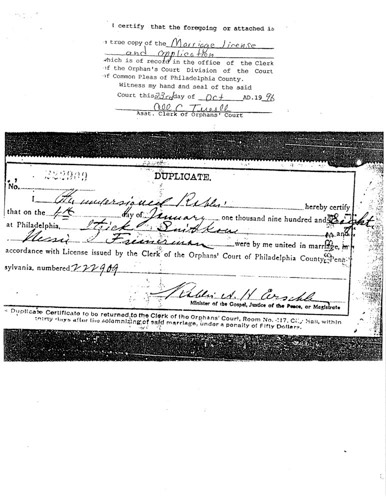 I certify that the foregoing or attached is
a true copy of the Marriage license
and application
which is of record in the office of the Clerk
of the Orphan's Court Division of the Court
of Common Pleas of Philadelphia County.
Witness my hand and seal of the said
Court this 23rd day of Oct AD. 1996
Asst. Clerk of Orphans' Court
222909 DUPLICATE.
No.
I, The undersigned Rabbi hereby certify
that on the 4th day of January one thousand nine hundred and Eight
at Philadelphia, and
were by me united in marriage, in
accordance with License issued by the Clerk of the Orphans' Court of Philadelphia County, Penn-
sylvania, numbered 222909
Rabbi
Minister of the Gospel, Justice of the Peace, or Magistrate
Duplicate Certificate to be returned to the Clerk of the Orphans' Court, Room No. 417, City Hall, within
thirty days after the solemnizing of said marriage, under a penalty of Fifty Dollars.